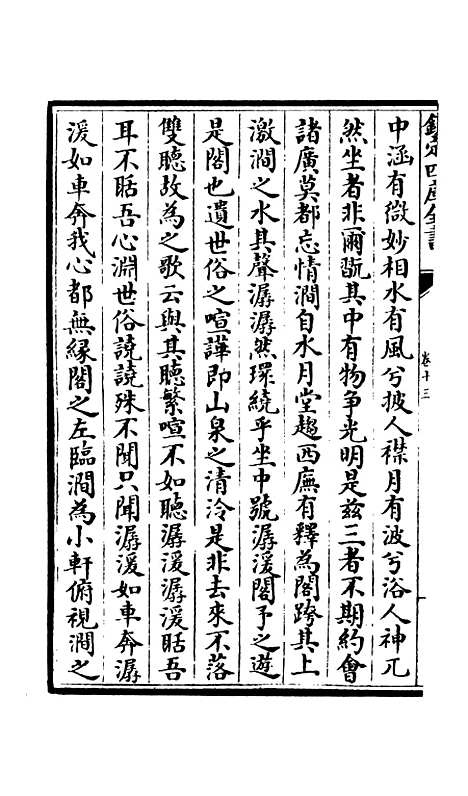 欽定四庫全書
卷十三
中涵有微妙相水有風兮披人襟月有波兮浴人神兀
然坐者非爾翫其中有物爭光明是兹三者不期約會
諸廣莫都忘情澗自水月堂趨西廡有釋為閣跨其上
激澗之水其聲潺潺然環繞乎坐中號潺湲閣予之遊
是閣也遺世俗之喧譁即山泉之清泠是非去來不落
雙聽故為之歌云與其聽繁喧不如聽潺湲潺湲聒吾
耳不聒吾心淵世俗譊譊殊不聞只聞潺湲如車奔潺
湲如車奔我心都無緣閣之左臨澗為小軒俯視澗之